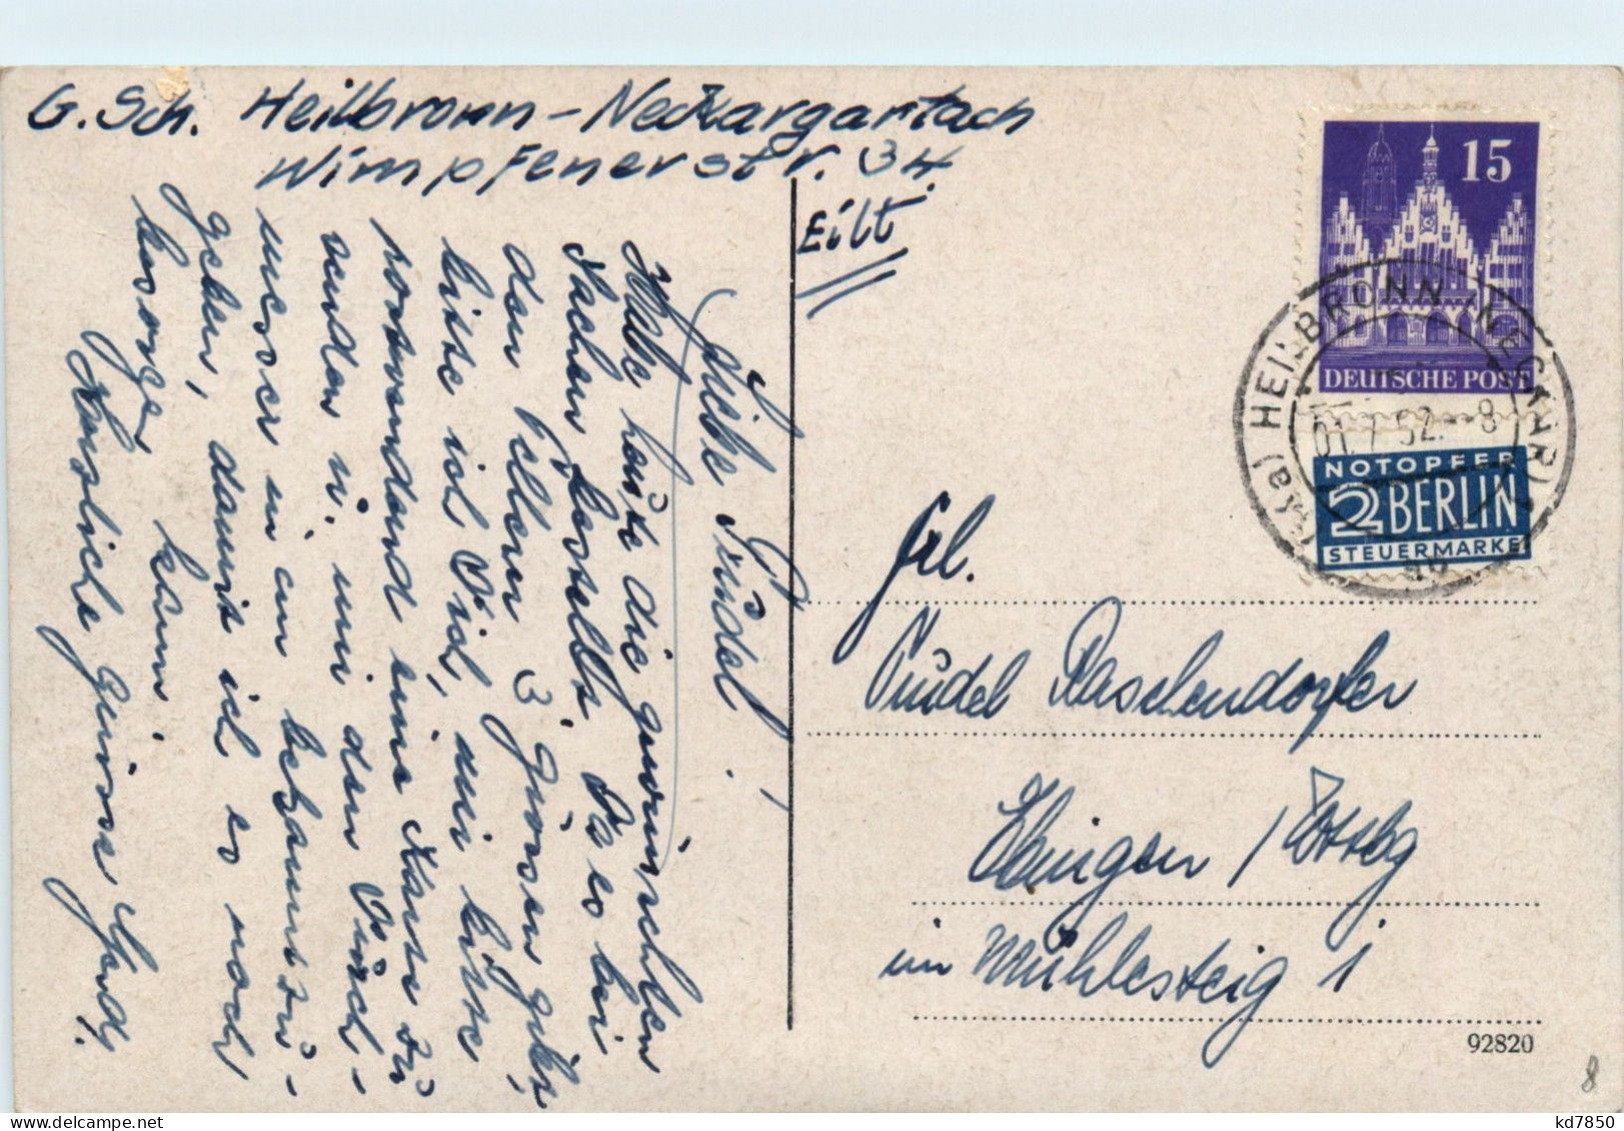 G. Sch. Heilbronn-Neckargartach
Wimpfenerstr. 34
Eilt
Liebe Trudel!
Habe heute die gewünschten
Sachen bestellt. Da es bei
den 3 Grösen gibt,
bitte ich Dich, mir bitte
postwendend eine Karte zu
senden u. mir den
unser in um bekannt zu-
geben, damit ich es noch
besorgen kann.
Herzliche Grüsse
15
DEUTSCHE POST
HEILBRONN (NECKAR) 1
52.-8
NOTOPFER
2 BERLIN
STEUERMARKE
Frl.
Trudel Raschendorfer
Ebingen / Württbg
im Mühlesteig 1
92820
8
kd7850